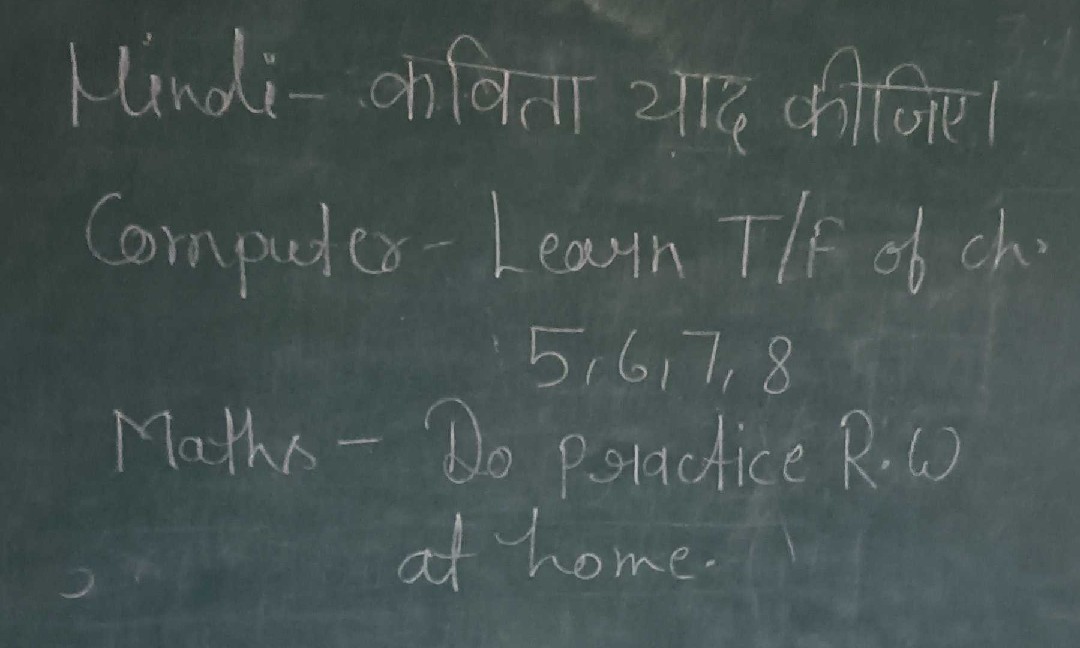 Hindi - कविता याद कीजिए।
Computer - Learn T/F of ch.
5, 6, 7, 8
Maths - Do practice R.W
at home.